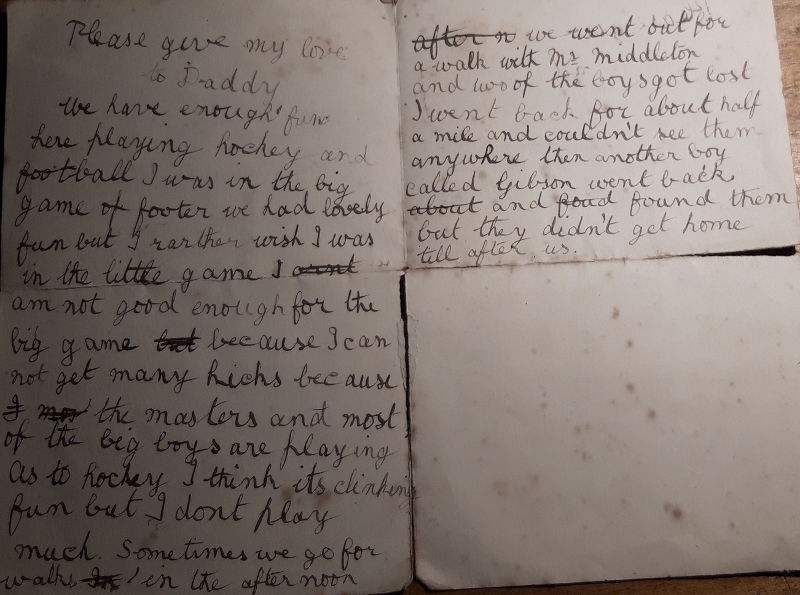 Please give my love
to Daddy
We have enough fun
here playing hockey and
football I was in the big
game of footer we had lovely
fun but I rarther wish I was
in the little game I arnt
am not good enough for the
big game but because I can
not get many kicks because
I the masters and most
of the big boys are playing
As to hockey I think its clinking
fun but I dont play
much. Sometimes we go for
walks In in the after noon
after n we went out for
a walk with Mr Middleton
and two of the boys got lost
I went back for about half
a mile and couldn't see them
anywhere then another boy
called Gibson went back
about and foud found them
but they didn't get home
till after us.